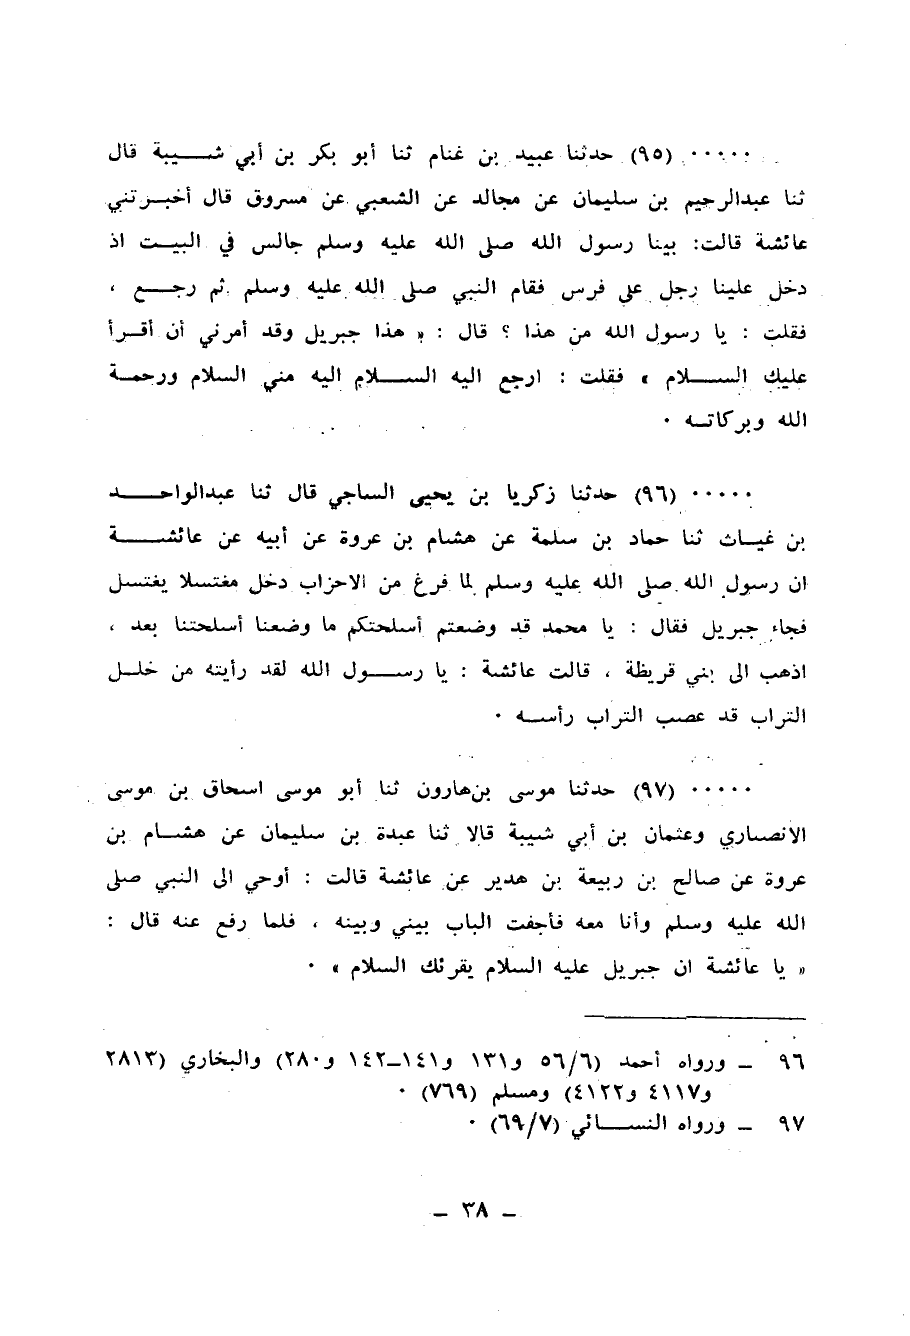 ٠٠٠٠٠ (٩٥) حدثنا عبيد بن غنام ثنا أبو بكر بن أبي شـــيبة قال
ثنا عبدالرحيم بن سليمان عن مجالد عن الشعبي عن مسروق قال أخبـرتني
عائشة قالت: بينا رسول الله صلى الله عليه وسلم جالس في البيـت اذ
دخل علينا رجل على فرس فقام النبي صلى الله عليه وسلم ثم رجـــع ،
فقلت : يا رسول الله من هذا ؟ قال : « هذا جبريل وقد أمرني أن أقـرأ
عليك الســـلام » فقلت : ارجع اليه الســـلام اليه مني السلام ورحمـة
الله وبركاتـه ٠
٠٠٠٠٠ (٩٦) حدثنا زكريا بن يحيى الساجي قال ثنا عبدالواحـــد
بن غيـاث ثنا حماد بن سلمة عن هشام بن عروة عن أبيه عن عائشـــة
ان رسول الله صلى الله عليه وسلم لما فرغ من الاحزاب دخل مغتسلا يغتسل
فجاء جبريل فقال : يا محمد قد وضعتم أسلحتكم ما وضعنا أسلحتنا بعد ،
اذهب الى بني قريظة ، قالت عائشة : يا رســـول الله لقد رأيته من خلـل
التراب قد عصب التراب رأسـه ٠
٠٠٠٠٠ (٩٧) حدثنا موسى بن هارون ثنا أبو موسى اسحاق بن موسى
الانصـاري وعثمان بن أبي شيبة قالا ثنا عبدة بن سليمان عن هشـام بن
عروة عن صالح بن ربيعة بن هدير عن عائشة قالت : أوحي الى النبي صلى
الله عليه وسلم وأنا معه فأجفت الباب بيني وبينه ، فلما رفع عنه قال :
« يا عائشة ان جبريل عليه السلام يقرئك السلام » ٠
٩٦ ـ ورواه أحمد (٥٦/٦ و١٣١ و١٤١ـ١٤٢ و٢٨٠) والبخاري (٢٨١٣
و٤١١٧ و٤١٢٢) ومسلم (٧٦٩) ٠
٩٧ ـ ورواه النســـائي (٦٩/٧) ٠
ـ ٣٨ ـ